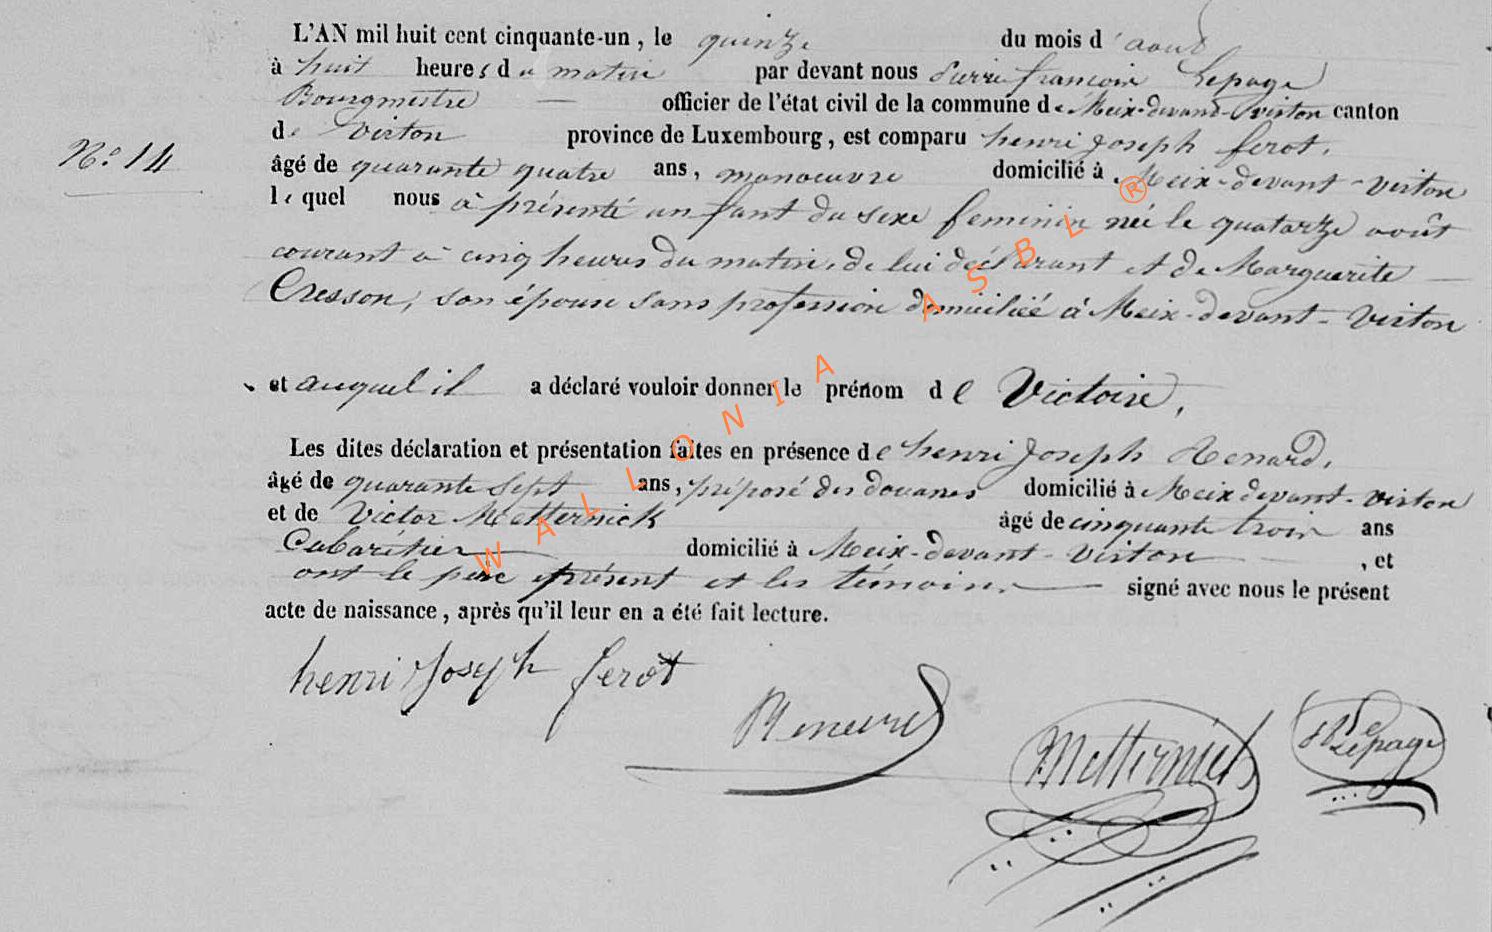 L'AN mil huit cent cinquante-un, le quinze du mois d'aout
à huit heures du matin par devant nous Pierre françois Lepage
Bourgmestre — officier de l'état civil de la commune de Meix-devant-virton canton
de virton province de Luxembourg, est comparu henri joseph ferot,
N.º 14
âgé de quarante quatre ans, manoeuvre domicilié à Meix-devant-virton
le quel nous à présenté un fant du sexe feminin née le quatorze août
courant à cinq heures du matin, de lui déclarant et de Marguerite —
Cresson, son épouse sans profession domiciliée à Meix-devant-virton
et auquel il a déclaré vouloir donner le prénom de Victoire,
Les dites déclaration et présentation faites en présence de henri joseph Renard,
âgé de quarante sept ans, préposé des douanes domicilié à Meix devant-virton
et de Victor Metternick âgé de cinquante trois ans
Cabarétier domicilié à Meix-devant-virton , et
ont le père présent et les témoins — signé avec nous le présent
acte de naissance, après qu'il leur en a été fait lecture.
henri joseph ferot
Metternich
Lepage
WALLONIA ASBL ®